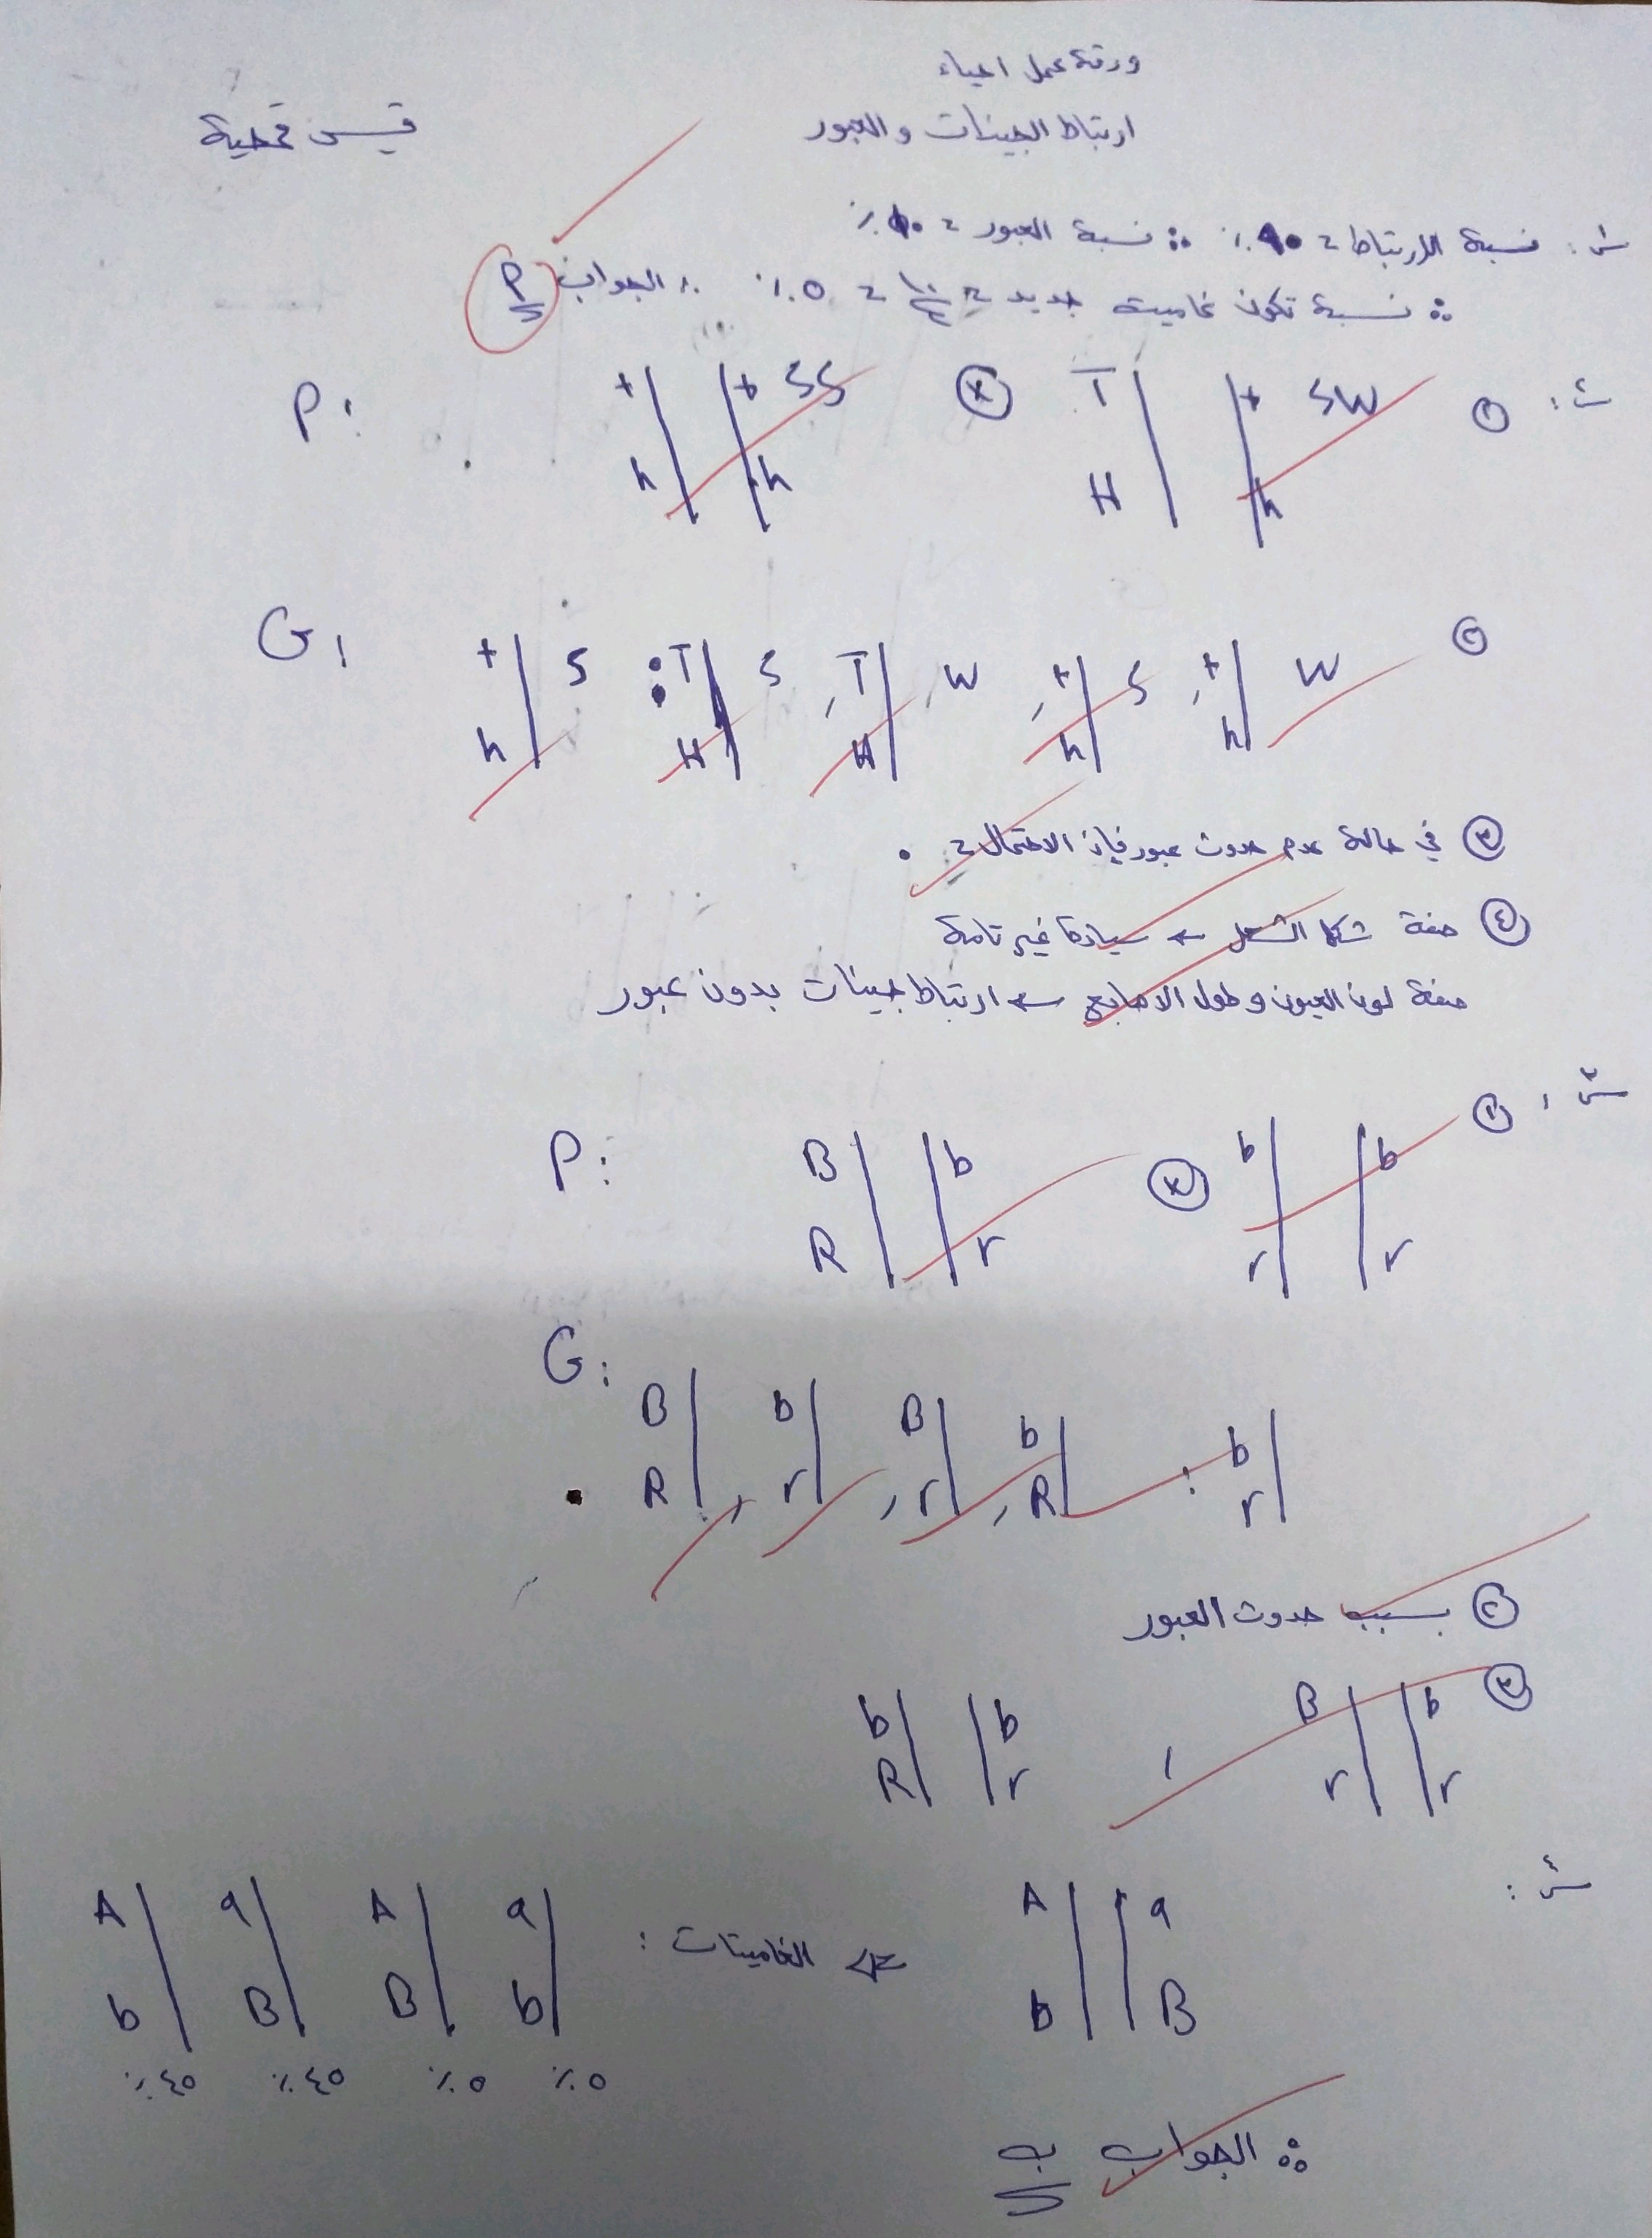 ورقة عمل احياء
ارتباط الجينات والعبور
قيس قمحية
س١: نسبة الارتباط = ٩٠٪ ∴ نسبة العبور = ١٠٪
∴ نسبة تكون غاميت جديد = = ٥٪ ∴ الجواب P
س٢: ① P: t t SS ⊗ T t SW
h h H h
② G: t S : T S , T W , t S , t W
h H H h h
③ في حالة عدم حدوث عبور فإن الاحتمال = ٠
④ صفة شكل الشعر ← سيادة غير تامة
صفة لون العيون وطول الاصابع ← ارتباط جينات بدون عبور
س٣: ① P: B b ⊗ b b
R r r r
G: B b B b b
R , r , r , R : r
② بسبب حدوث العبور
③ b b , B b
R r r r
س٤: A a ⇐ الغاميتات : A a A a
b B b B B b
٤٥٪ ٤٥٪ ٥٪ ٥٪
∴ الجواب ب